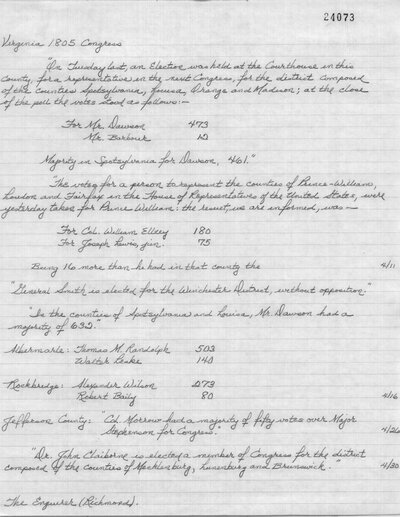 24073
Virginia 1805 Congress
"On Tuesday last, an Election was held at the Courthouse in this
County, for a representative in the next Congress, for the district composed
of the counties Spotsylvania, Louisa, Orange and Madison; at the close
of the poll the votes stood as follows:—
For Mr. Dawson 473
Mr. Barbour 12
Majority in Spotsylvania for Dawson, 461."
"The votes for a person to represent the counties of Prince-William,
Loudon and Fairfax in the House of Representatives of the United States, were
yesterday taken for Prince William: the result, we are informed, was—
For Col. William Ellzey 180
For Joseph Lewis, jun. 75
Being 16 more than he had in that county the 4/11
"General Smith is elected for the Winchester District, without opposition."
"In the counties of Spotsylvania and Louisa, Mr. Dawson had a
majority of 632."
Albermarle: Thomas M. Randolph 503
Walter Leake 140
Rockbridge: Alexander Wilson 273
Robert Baily 80 4/16
Jefferson County: "Col. Morrow had a majority of fifty votes over Major
Stephenson for Congress. 4/26
"Dr. John Claiborne is elected a member of Congress for the district
composed of the Counties of Mecklenburg, Lunenburg and Brunswick." 4/30
The Enquirer (Richmond).